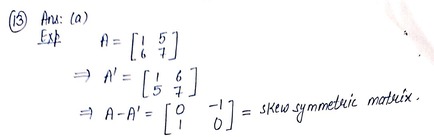 (13) Ans: (a)
Exp A = [1 5
6 7]
⇒ A' = [1 6
5 7]
⇒ A-A' = [0 -1
1 0] = skew symmetric matrix.